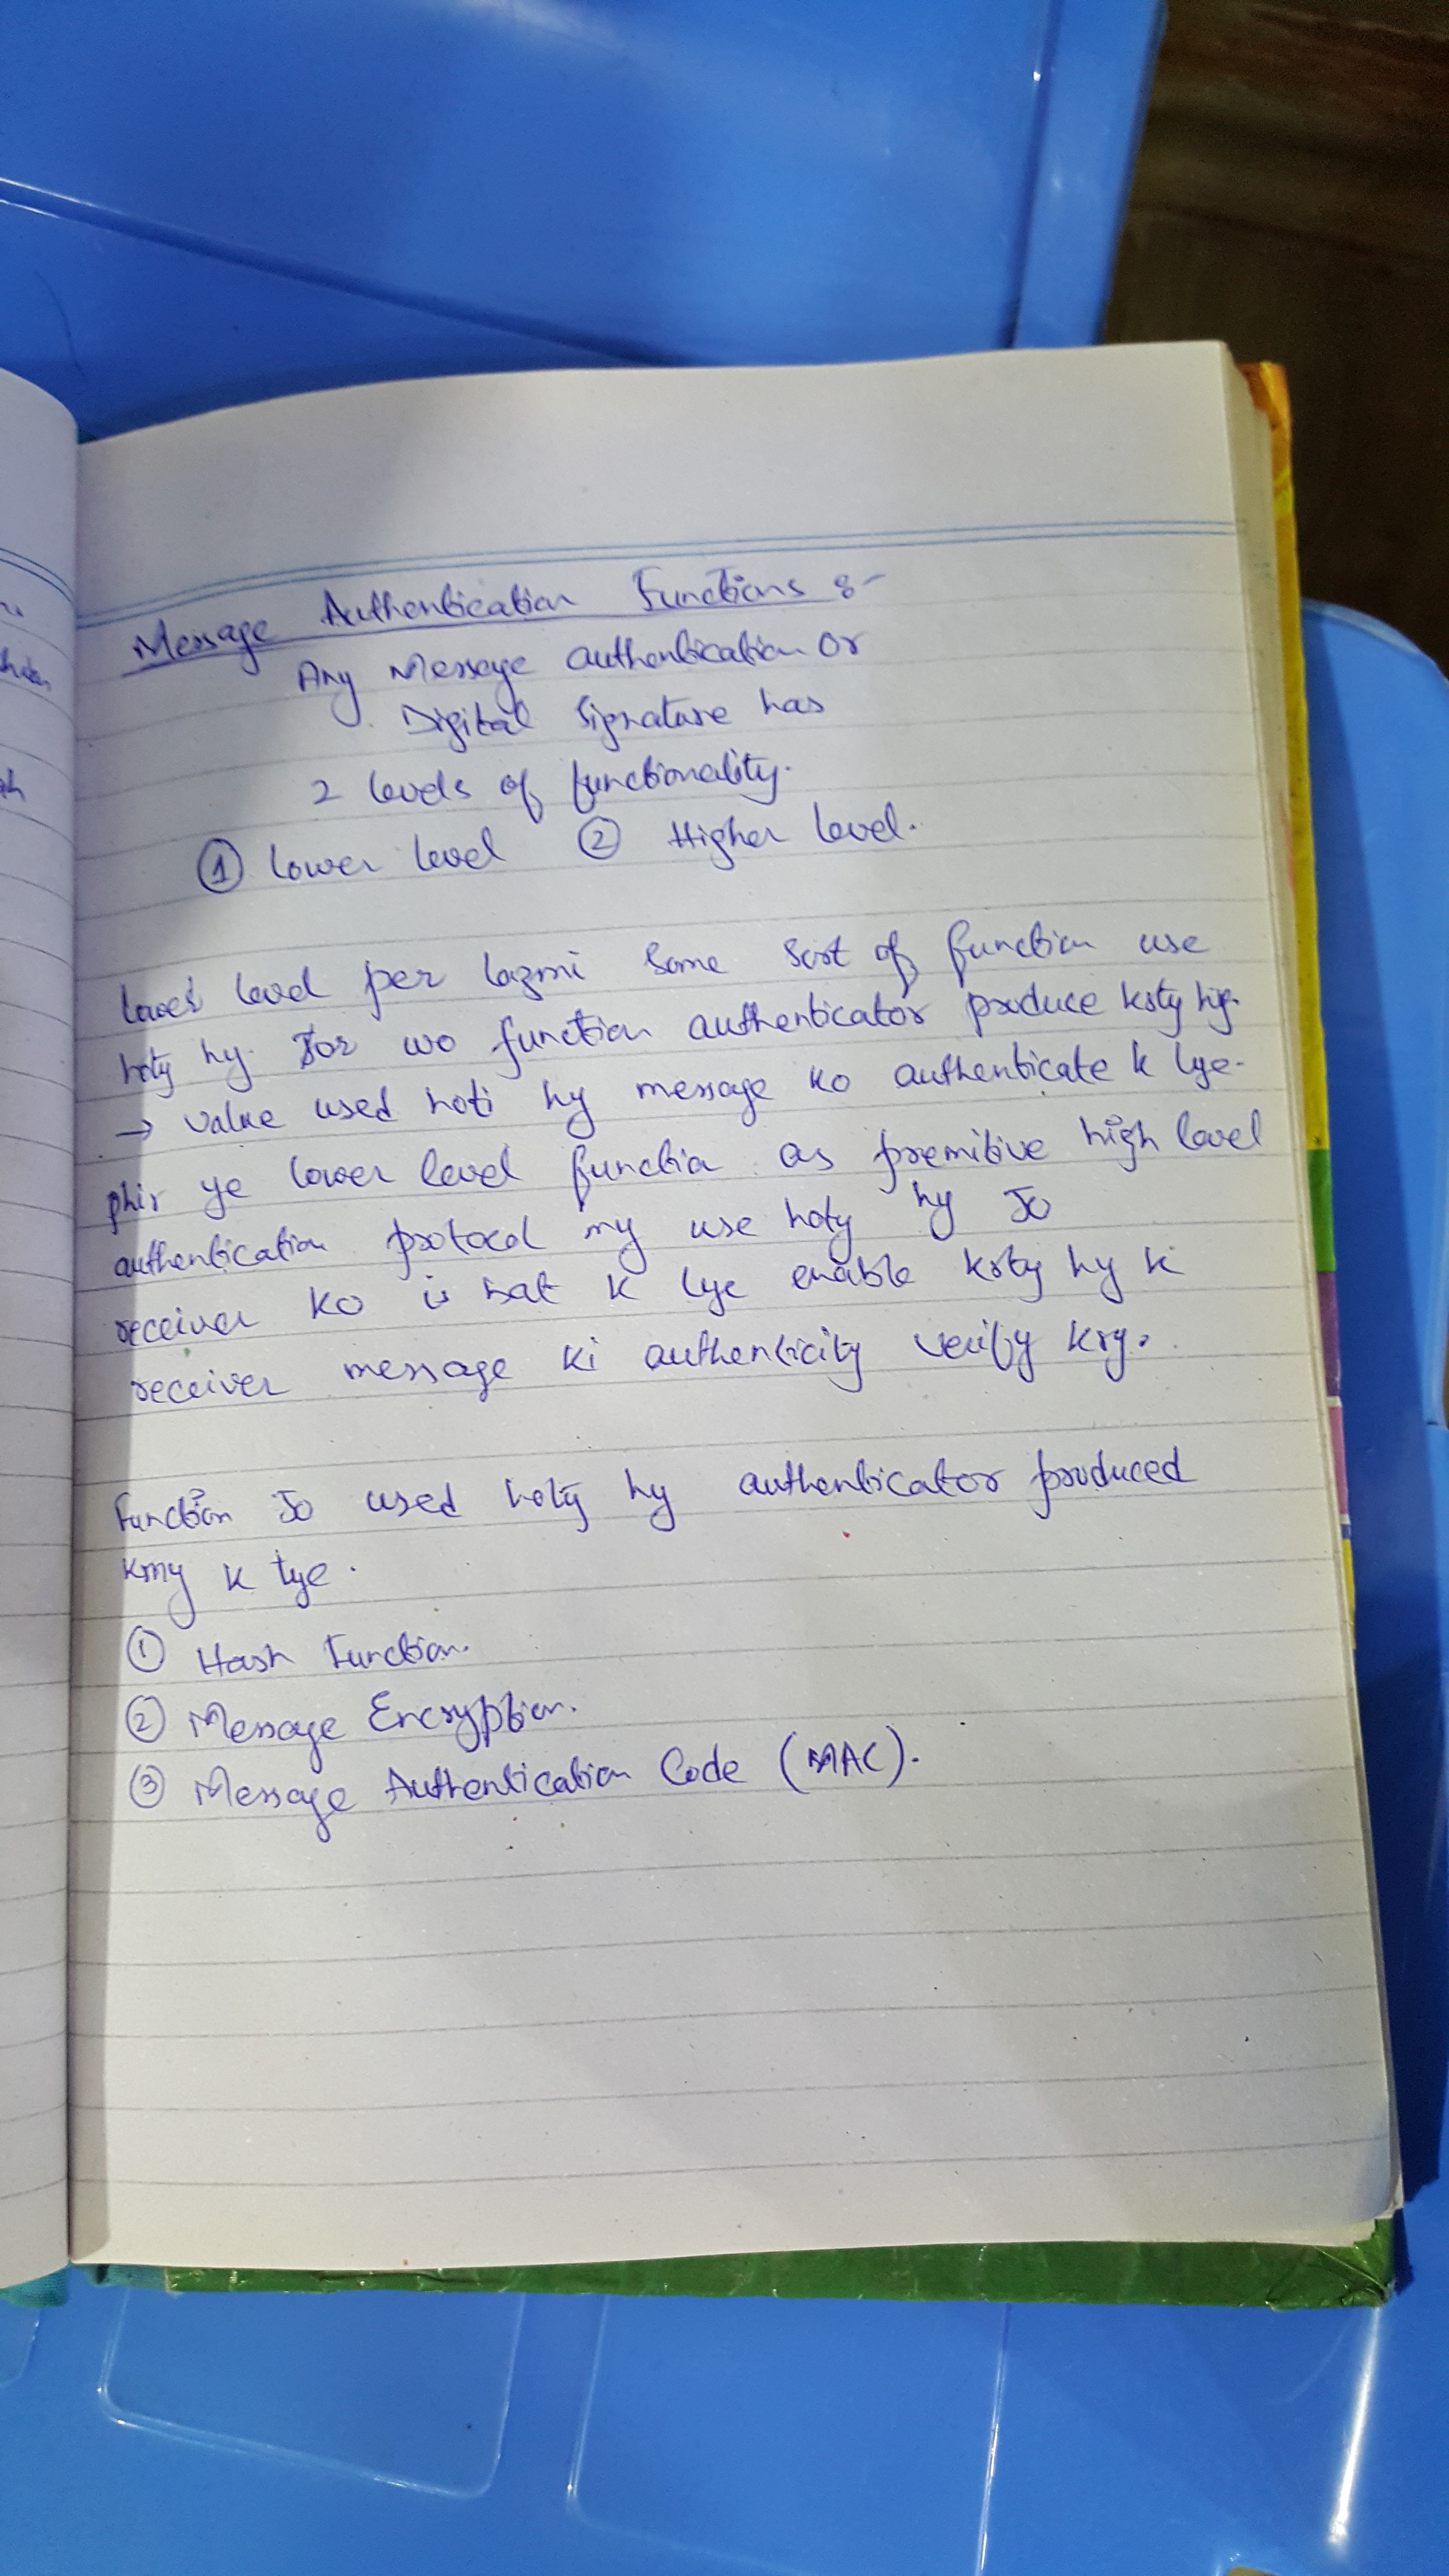 Message Authentication Functions :-
Any Message authentication or
Digital Signature has
2 levels of functionality.
① Lower level ② Higher level.
lower level per lazmi some sort of function use
hoty hy. Jor wo function authenticator produce krty hy.
→ value used hoti hy message ko authenticate k lye.
phir ye lower level function as premitive high level
authentication protocol my use hoty hy Jo
receiver ko is bat k lye enable krty hy k
receiver message ki authenticity verify kry.
Function Jo used hoty hy authenticator produced
krny k lye.
① Hash Function.
② Message Encryption.
③ Message Authentication Code (MAC).